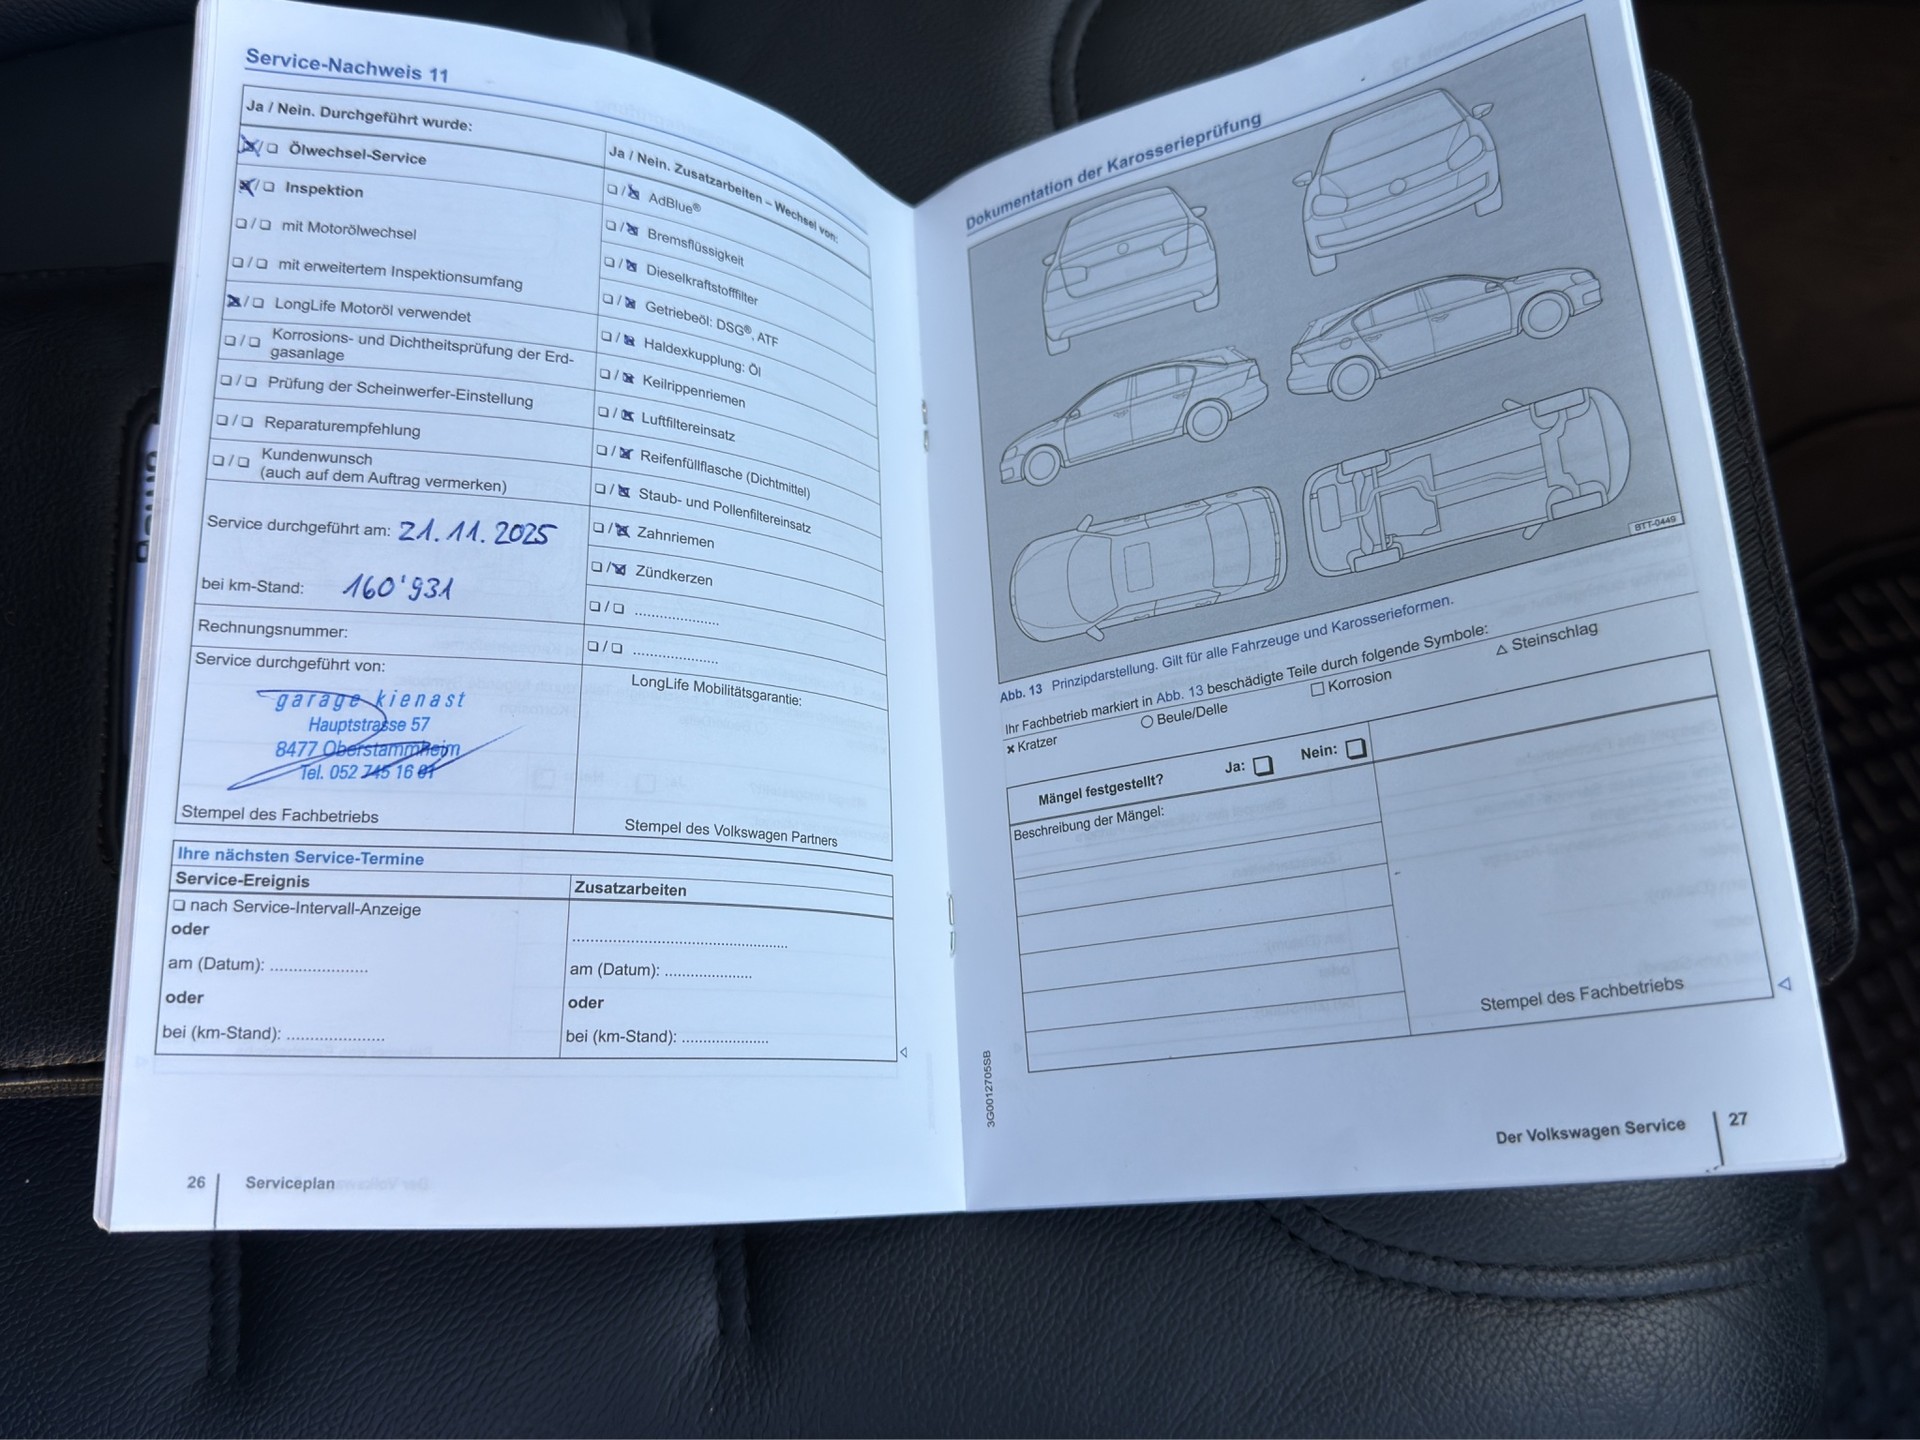 Service-Nachweis 11
Ja / Nein. Durchgeführt wurde:
Ölwechsel-Service
Inspektion
mit Motorölwechsel
mit erweitertem Inspektionsumfang
LongLife Motoröl verwendet
Korrosions- und Dichtheitsprüfung der Erd-
gasanlage
Prüfung der Scheinwerfer-Einstellung
Reparaturempfehlung
Kundenwunsch
(auch auf dem Auftrag vermerken)
Service durchgeführt am: 21.11.2025
bei km-Stand: 160'931
Rechnungsnummer:
Service durchgeführt von:
garage kienast
Hauptstrasse 57
8477 Oberstammheim
Tel. 052 745 16 61
Stempel des Fachbetriebs
Ja / Nein. Zusatzarbeiten – Wechsel von:
AdBlue®
Bremsflüssigkeit
Dieselkraftstofffilter
Getriebeöl: DSG®, ATF
Haldexkupplung: Öl
Keilrippenriemen
Luftfiltereinsatz
Reifenfüllflasche (Dichtmittel)
Staub- und Pollenfiltereinsatz
Zahnriemen
Zündkerzen
....................
....................
LongLife Mobilitätsgarantie:
Stempel des Volkswagen Partners
Ihre nächsten Service-Termine
Service-Ereignis
nach Service-Intervall-Anzeige
oder
am (Datum): ....................
oder
bei (km-Stand): ....................
Zusatzarbeiten
....................
am (Datum): ....................
oder
bei (km-Stand): ....................
26 Serviceplan
Dokumentation der Karosserieprüfung
BTT-0449
Abb. 13 Prinzipdarstellung. Gilt für alle Fahrzeuge und Karosserieformen.
Ihr Fachbetrieb markiert in Abb. 13 beschädigte Teile durch folgende Symbole:
× Kratzer ○ Beule/Delle □ Korrosion △ Steinschlag
Mängel festgestellt? Ja: Nein:
Beschreibung der Mängel:
Stempel des Fachbetriebs
3G0012705SB
Der Volkswagen Service 27